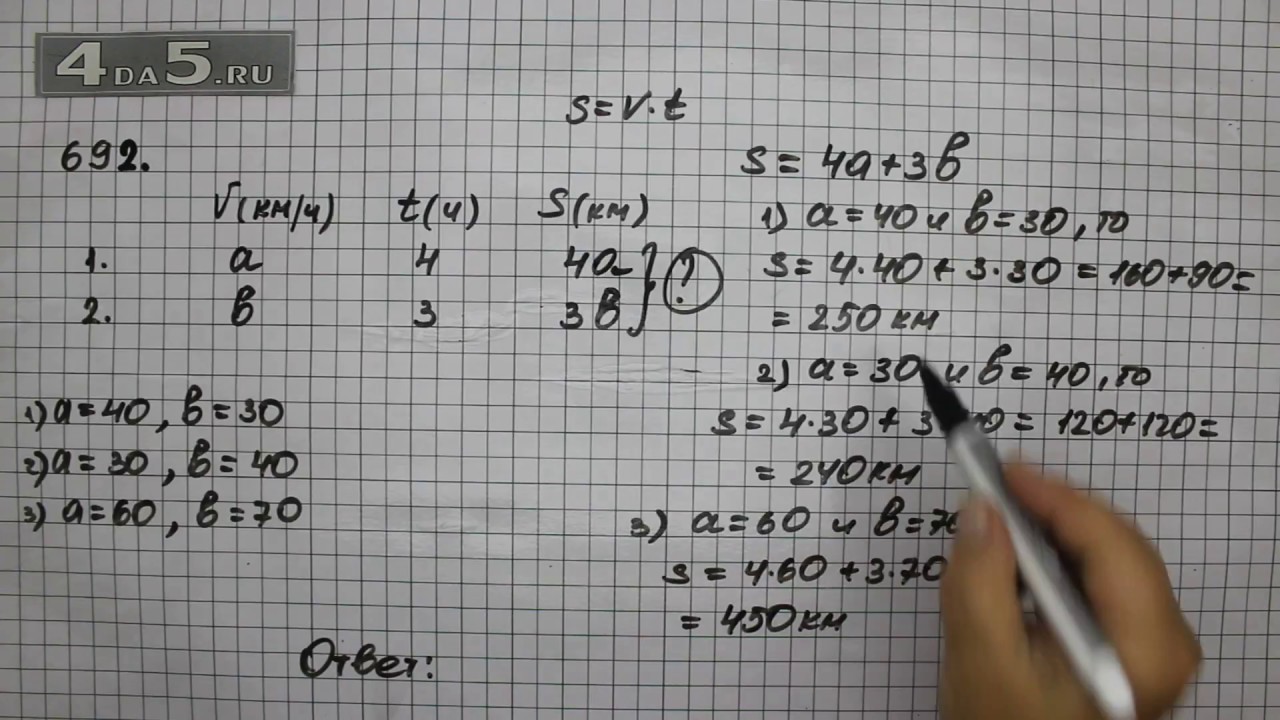 4DA5.RU
s = v·t
692.
V(км/ч) t(ч) S(км)
1. a 4 4a
2. в 3 3в
?
1) a = 40, в = 30
2) a = 30, в = 40
3) a = 60, в = 70
s = 4a + 3в
1) a = 40 и в = 30, то
s = 4·40 + 3·30 = 160 + 90 =
= 250 км
2) a = 30 и в = 40, то
s = 4·30 + 3 0 = 120 + 120 =
= 240 км
3) a = 60 и в = 7
s = 4·60 + 3·70
= 450 км
Ответ: